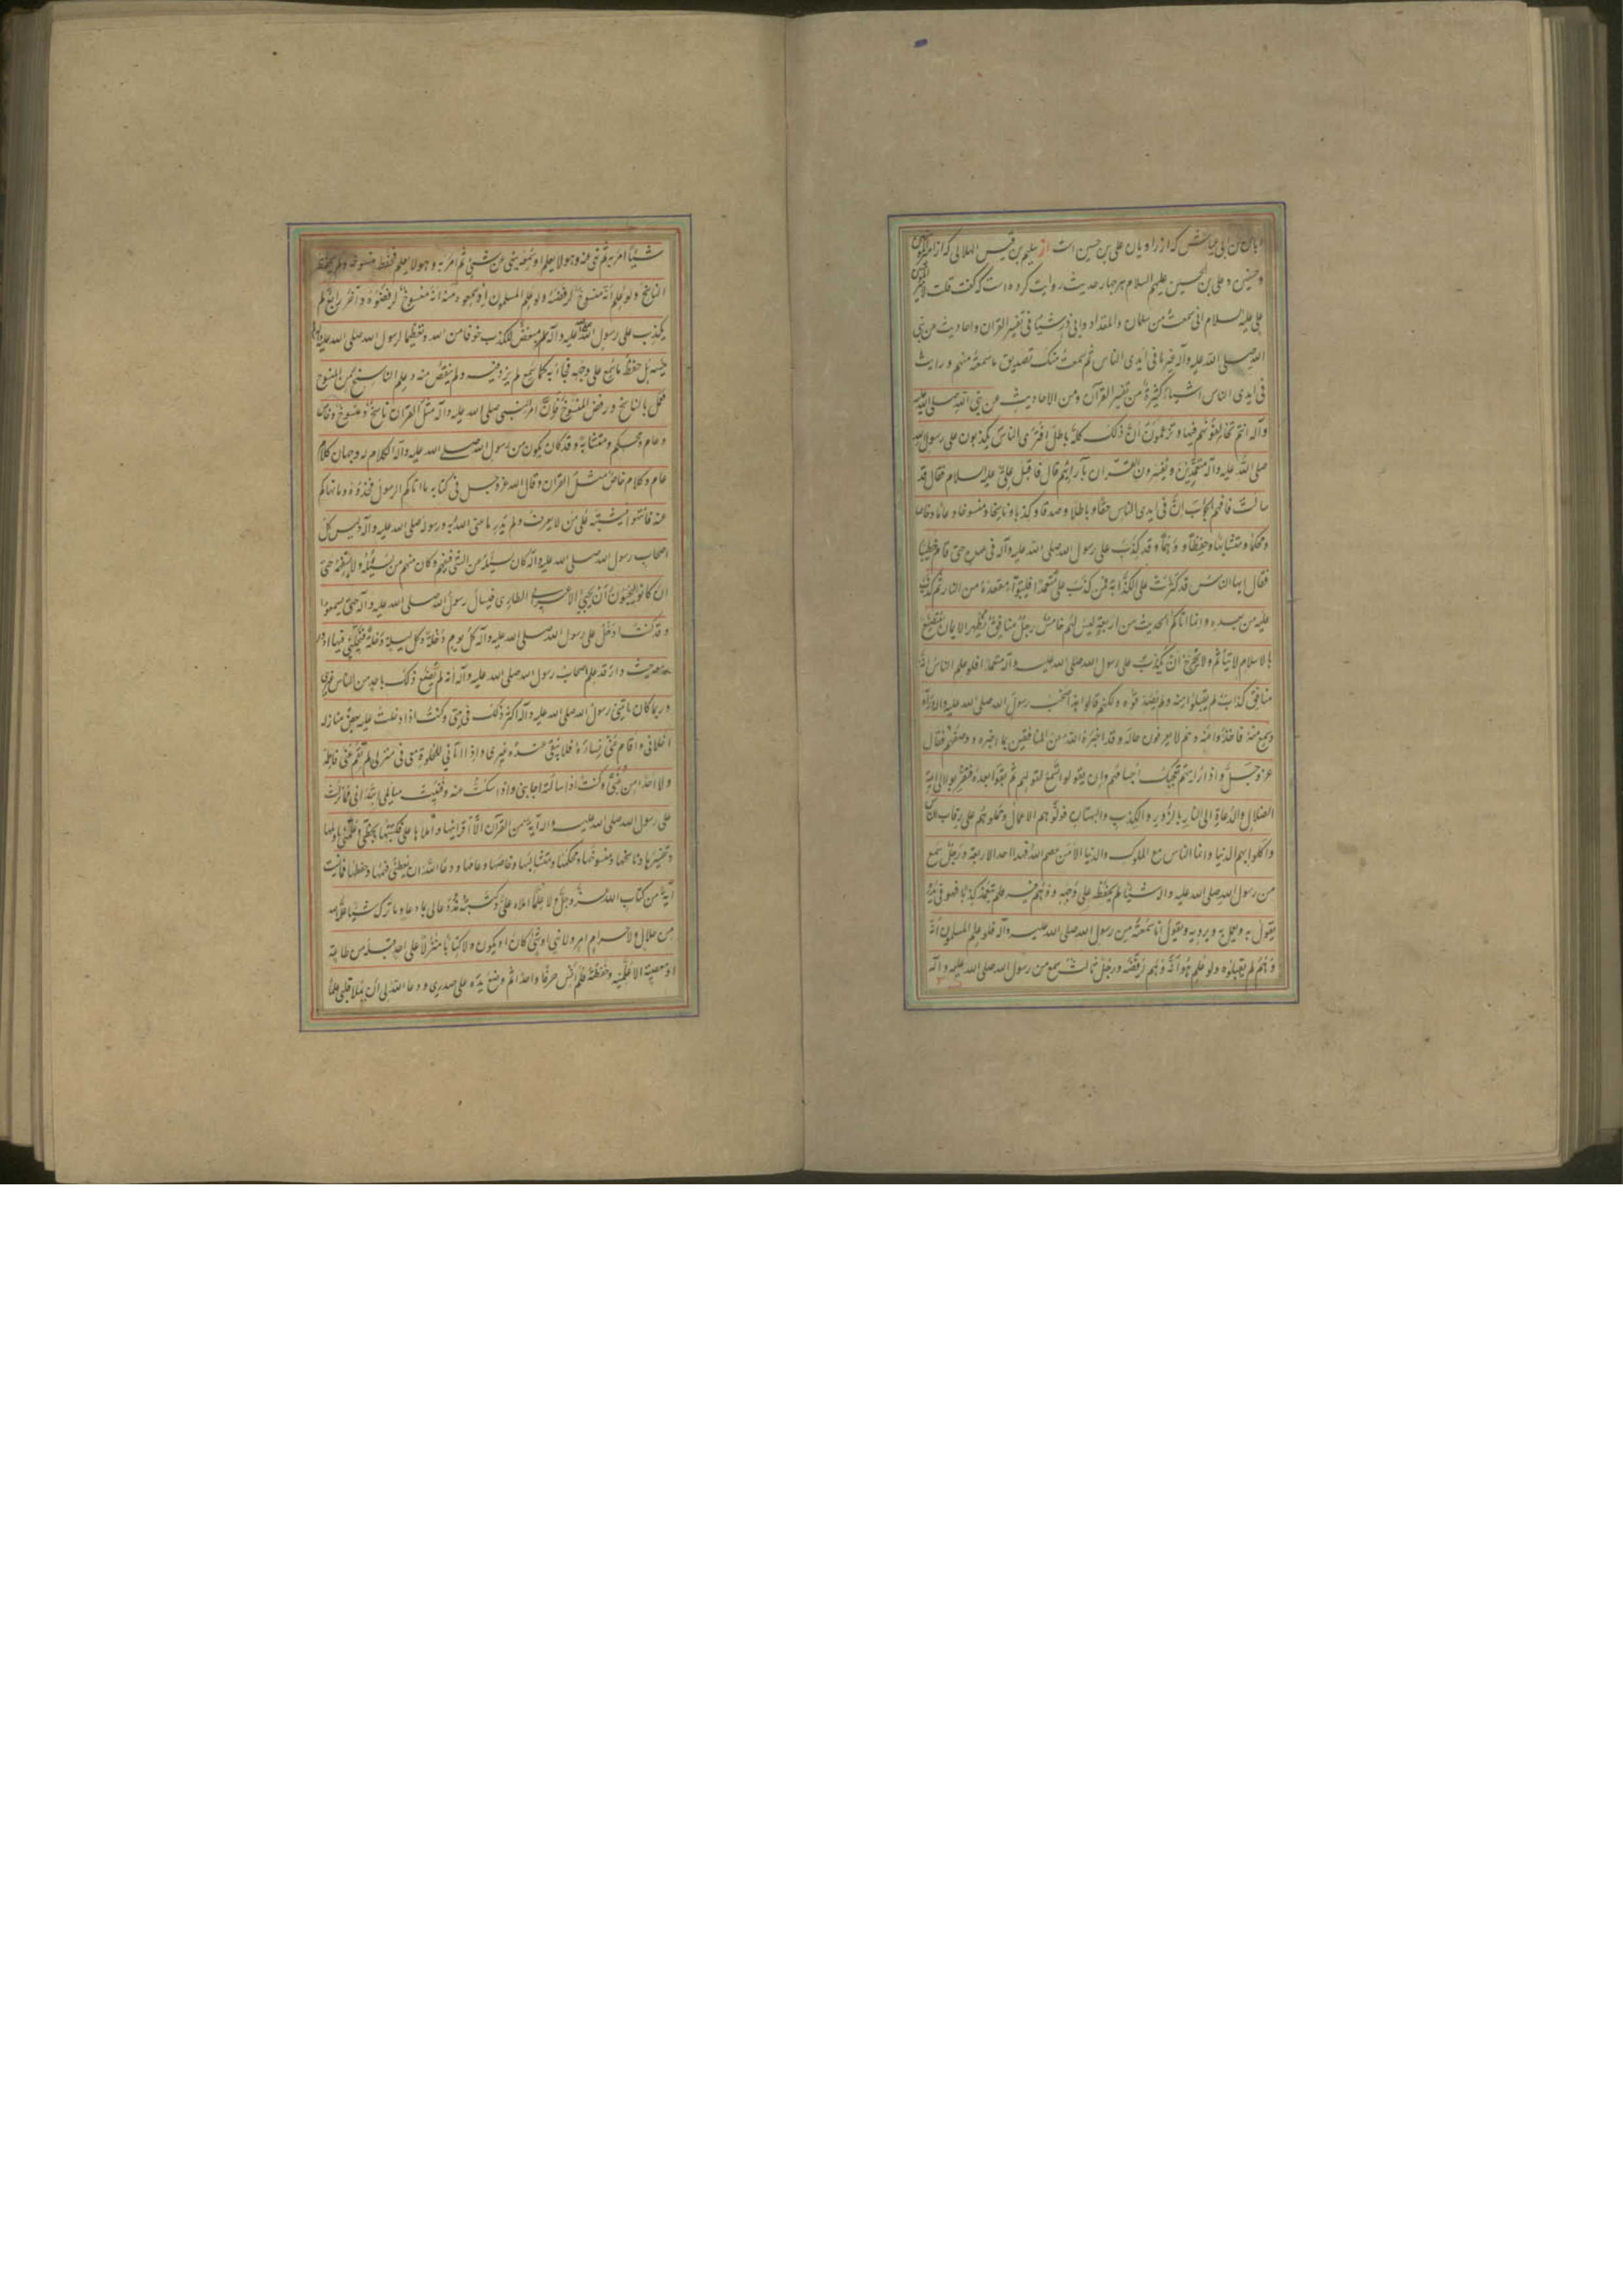 ابان بن ابی عیاش که از راویان علی بن حسین است از سلیم بن قیس الهلالی که از امیرالمؤمنین
و حسین و علی بن الحسین علیهم السلام هر چهار حدیث روایت کرده است که گفت قلت لامیرالمؤمنین
علی علیه السلام انی سمعت من سلمان والمقداد وابی ذر شیئا فی تفسیر القرآن واحادیث عن نبی
الله صلی الله علیه وآله غیر ما فی ایدی الناس ثم سمعت منک تصدیق ما سمعته منهم و رایت
فی ایدی الناس اشیاء کثیرة من تفسیر القرآن ومن الاحادیث عن نبی الله صلی الله علیه
وآله انتم تخالفونهم فیها و تزعمون ان ذلک کله باطل افتری الناس یکذبون علی رسول الله
صلی الله علیه وآله متعمدین و یفسرون القرآن بآرائهم قال فاقبل علی علیه السلام فقال قد
سالت فافهم الجواب ان فی ایدی الناس حقا و باطلا و صدقا و کذبا و ناسخا و منسوخا و عاما و خاصا
و محکما و متشابها و حفظا و وهما و قد کذب علی رسول الله صلی الله علیه وآله فی عهده حتی قام خطیبا
فقال ایها الناس قد کثرت علی الکذابة فمن کذب علی متعمدا فلیتبوا مقعده من النار ثم کذب
علیه من بعده وانما اتاکم الحدیث من اربعة لیس لهم خامس رجل منافق یظهر الایمان متصنع
بالاسلام لا یتاثم ولا یتحرج ان یکذب علی رسول الله صلی الله علیه وآله متعمدا فلو علم الناس انه
منافق کذاب لم یقبلوا منه ولم یصدقوه ولکنهم قالوا هذا صحب رسول الله صلی الله علیه وآله ورآه
وسمع منه فاخذوا منه وهم لا یعرفون حاله وقد اخبره الله عن المنافقین بما اخبره ووصفهم فقال
عز وجل واذا رایتهم تعجبک اجسامهم وان یقولوا تسمع لقولهم ثم بقوا بعده فتقربوا الی ائمة
الضلال والدعاة الی النار بالزور والکذب والبهتان فولوهم الاعمال وحملوهم علی رقاب الناس
واکلوا بهم الدنیا وانما الناس مع الملوک والدنیا الا من عصم الله فهذا احد الاربعة ورجل سمع
من رسول الله صلی الله علیه وآله شیئا لم یحفظه علی وجهه و وهم فیه فلم یتعمد کذبا فهو فی یده
یقول به ویعمل به ویرویه ویقول انا سمعته من رسول الله صلی الله علیه وآله فلو علم المسلمون انه
وهم لم یقبلوه ولو علم هو انه وهم لرفضه ورجل ثالث سمع من رسول الله صلی الله علیه وآله
شیئا امر به ثم نهی عنه وهو لا یعلم او سمعه ینهی عن شیء ثم امر به وهو لا یعلم فحفظ منسوخه ولم یحفظ
الناسخ ولو علم انه منسوخ لرفضه ولو علم المسلمون اذ سمعوه منه انه منسوخ لرفضوه وآخر رابع لم
یکذب علی رسول الله صلی الله علیه وآله مبغض للکذب خوفا من الله وتعظیما لرسول الله صلی الله علیه وآله
لم ینسه بل حفظ ما سمع علی وجهه فجاء به کما سمع لم یزد فیه ولم ینقص منه وعلم الناسخ من المنسوخ
فعمل بالناسخ ورفض المنسوخ فان امر النبی صلی الله علیه وآله مثل القرآن ناسخ ومنسوخ وخاص
وعام ومحکم ومتشابه وقد کان یکون من رسول الله صلی الله علیه وآله الکلام له وجهان کلام
عام وکلام خاص مثل القرآن وقال الله عز وجل فی کتابه ما اتاکم الرسول فخذوه وما نهاکم
عنه فانتهوا فیشتبه علی من لا یعرف ولم یدر ما عنی الله به ورسوله صلی الله علیه وآله ولیس کل
اصحاب رسول الله صلی الله علیه وآله کان یسئله عن الشیء فیفهم وکان منهم من یسئله ولا یستفهمه حتی
ان کانوا لیحبون ان یجیئ الاعرابی الطاری فیسال رسول الله صلی الله علیه وآله حتی یسمعوا
وقد کنت ادخل علی رسول الله صلی الله علیه وآله کل یوم دخلة وکل لیلة دخلة فیخلینی فیها ادور
معه حیث دار قد علم اصحاب رسول الله صلی الله علیه وآله انه لم یصنع ذلک باحد من الناس غیری
وربما کان یاتینی رسول الله صلی الله علیه وآله اکثر ذلک فی بیتی وکنت اذا دخلت علیه بعض منازله
اخلانی واقام عنی نساءه فلا یبقی عنده غیری واذا اتانی للخلوة معی فی منزلی لم تقم عنی فاطمة
ولا احدا من بنی وکنت اذا سالته اجابنی واذا سکت عنه وفنیت مسایلی ابتدانی فما نزلت
علی رسول الله صلی الله علیه وآله آیة من القرآن الا اقرانیها واملاها علی فکتبتها بخطی وعلمنی تاویلها
وتفسیرها وناسخها ومنسوخها ومحکمها ومتشابهها وخاصها وعامها ودعا الله ان یعطینی فهمها وحفظها فما نسیت
آیة من کتاب الله عز وجل ولا علما املاه علی وکتبته منذ دعا لی بما دعا وما ترک شیئا علمه الله
من حلال ولا حرام امر ولا نهی او شیء کان او یکون ولا کتابا منزلا علی احد قبله من طاعة
او معصیة الا علمنیه وحفظته فلم انس حرفا واحدا ثم وضع یده علی صدری ودعا الله لی ان یملا قلبی علما